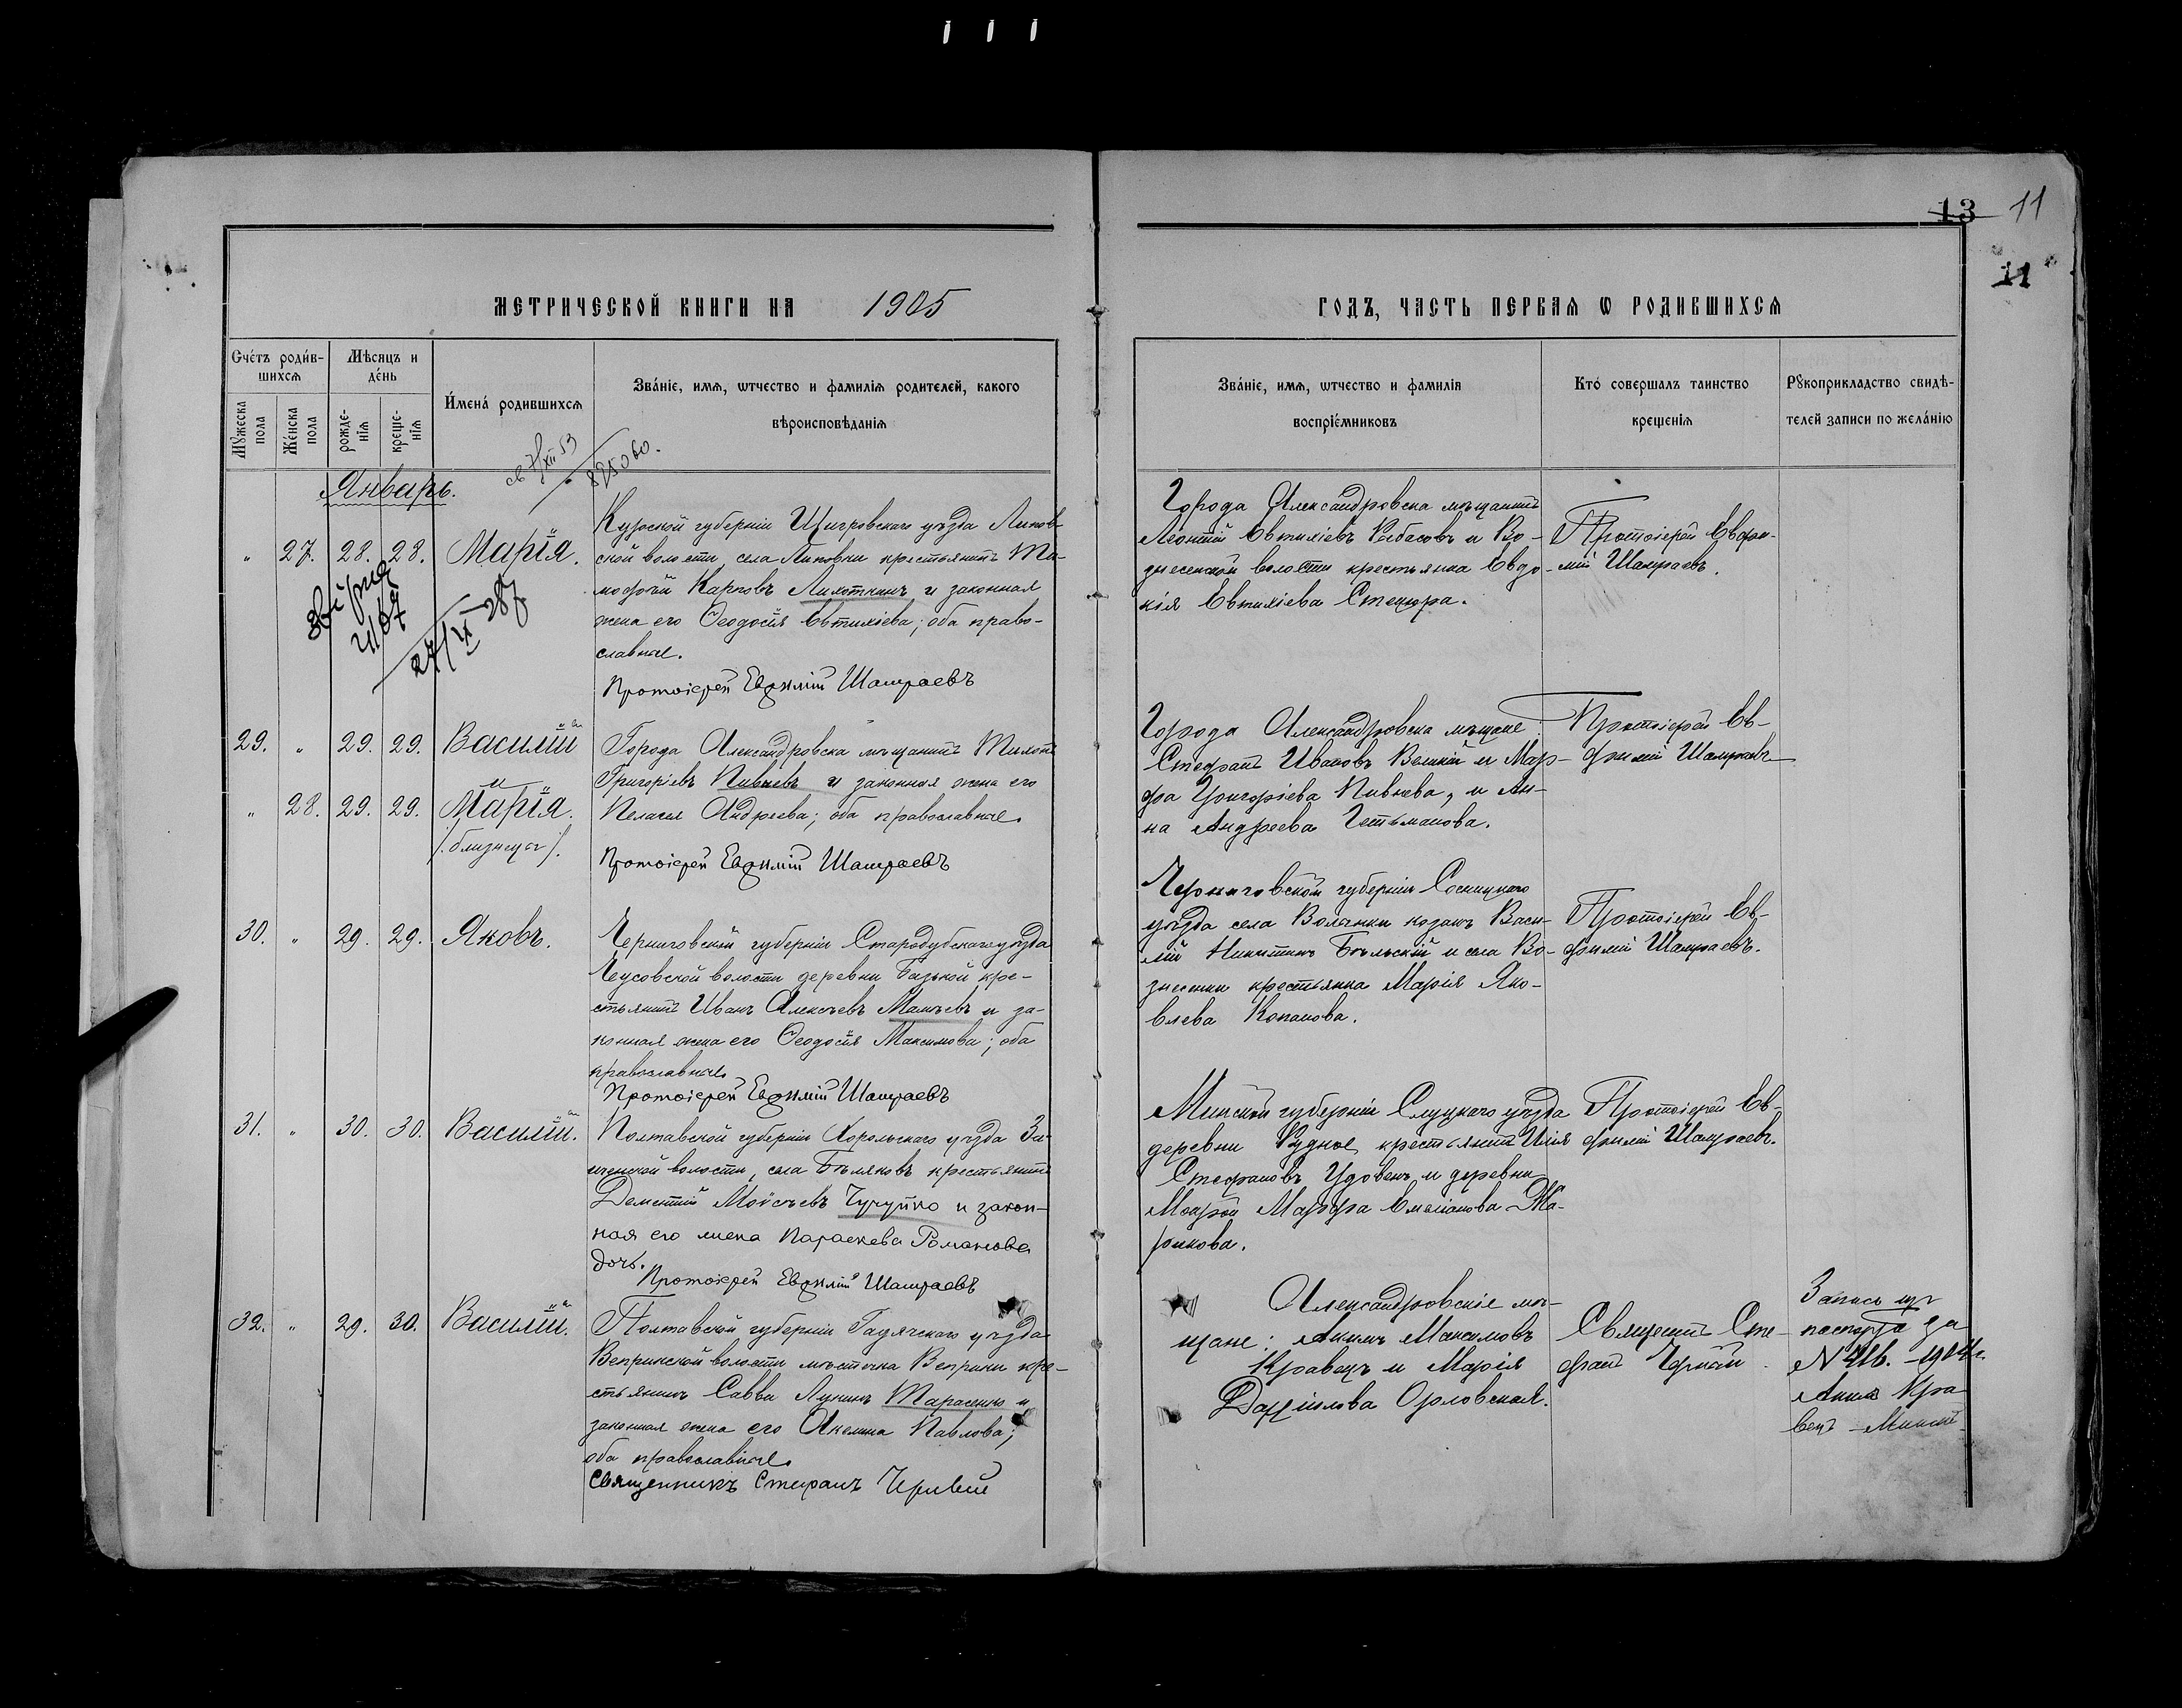 13 11
11
МЕТРИЧЕСКОЙ КНИГИ НА 1905
ГОДЪ, ЧАСТЬ ПЕРВАѦ Ѡ РОДИВШИХСѦ
Счéтъ роди́вшихсѧ
Мѣсяцъ и дéнь
Мꙋжеска пола
Жéнска пола
рожденiѧ
крещенiѧ
И҆мена́ родившихсѧ
Звáнiе, имѧ, ѡтчество и фамилiѧ родителей, какого
вѣроисповѣданiѧ
Звáнiе, имѧ, ѡтчество и фамилiѧ
воспрiéмниковъ
Ктó совершалъ таинство
крещенiѧ
Рꙋкоприкладство свидѣ-
телей записи по желáнiю
Январь.
" 27. 28. 28. Марія.
Курской губерніи Щигровскаго уѣзда Липов-
ской волости, села Липовки крестьянинъ Ти-
мофей Карповъ и законная
жена его Ѳеодосія Евтихіева; оба право-
славные.
Протоіерей Евфимій Шамраевъ
Города Александровска мѣщанинъ
Леонтій Евтихіевъ и Во-
знесенской волости крестьянка Евдо-
кія Евтихіева
Протоіерей Евфи-
мій Шамраевъ.
27/IX 28
29. " 29. 29. Василій
" 28. 29. 29. Марія.
/близнецы/.
Города Александровска мѣщанинъ
Григоріевъ Пивневъ и законная жена его
Пелагія Андреева; оба православные.
Протоіерей Евфимій Шамраевъ
Города Александровска мѣщане:
Стефанъ Ивановъ Великій и Мар-
фа Григоріева Пивнева, и Ан-
на Андреева Гетьманова.
Протоіерей Ев-
фимій Шамраевъ
30. " 29. 29. Яковъ.
Черниговской губерніи Стародубскаго уѣзда
волости деревни кре-
стьянинъ Иванъ Алексѣевъ Мамѣевъ и за-
конная жена его Ѳеодосія Максимова; оба
православные.
Протоіерей Евфимій Шамраевъ
Черниговской губерніи Сосницкаго
уѣзда села Волынки козакъ Васи-
лій Никитинъ Бѣльскій и села Во-
знесенки крестьянка Марія Яко-
влева Копанова.
Протоіерей Ев-
фимій Шамраевъ.
31. " 30. 30. Василій.
Полтавской губерніи Хорольскаго уѣзда За-
волости, села Бѣляковъ крестьянинъ
Дементій Моисѣевъ и закон-
ная его жена Параскева Романова
дочь.
Протоіерей Евфимій Шамраевъ
Минской губерніи Слуцкаго уѣзда
деревни Рудное крестьянинъ Илія
Стефановъ Удовенъ и деревни
Мокрой Марфа Емеліанова
Протоіерей Ев-
фимій Шамраевъ.
32. " 29. 30. Василій.
Полтавской губерніи Гадячскаго уѣзда
Веприкской волости мѣстечка Веприки кре-
стьянинъ Савва Лукинъ Тарасенко и
законная жена его Акелина Павлова;
оба православные.
Священникъ Стефанъ
Александровскіе мѣ-
щане: Акимъ Максимовъ
Кравецъ и Марія
Даніилова Орловская.
Священникъ Сте-
фанъ
Запись изъ
паспорта за
1904 г.
Акимъ Кра
вецъ